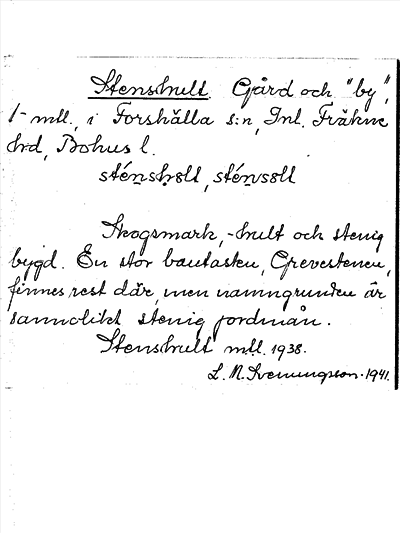 Stenshult. Gård och "by",
1 mtl, i Forshälla s:n, Inl. Fräkne
hrd, Bohus l.
sténshölt, sténsölt
Skogsmark, -hult och stenig
bygd. En stor bautasten, Grevestenen,
finnes rest där, men namngrunden är
sannolikt stenig jordmån.
Stenshult mtl. 1938.
L. M. Svenungsson. 1941.